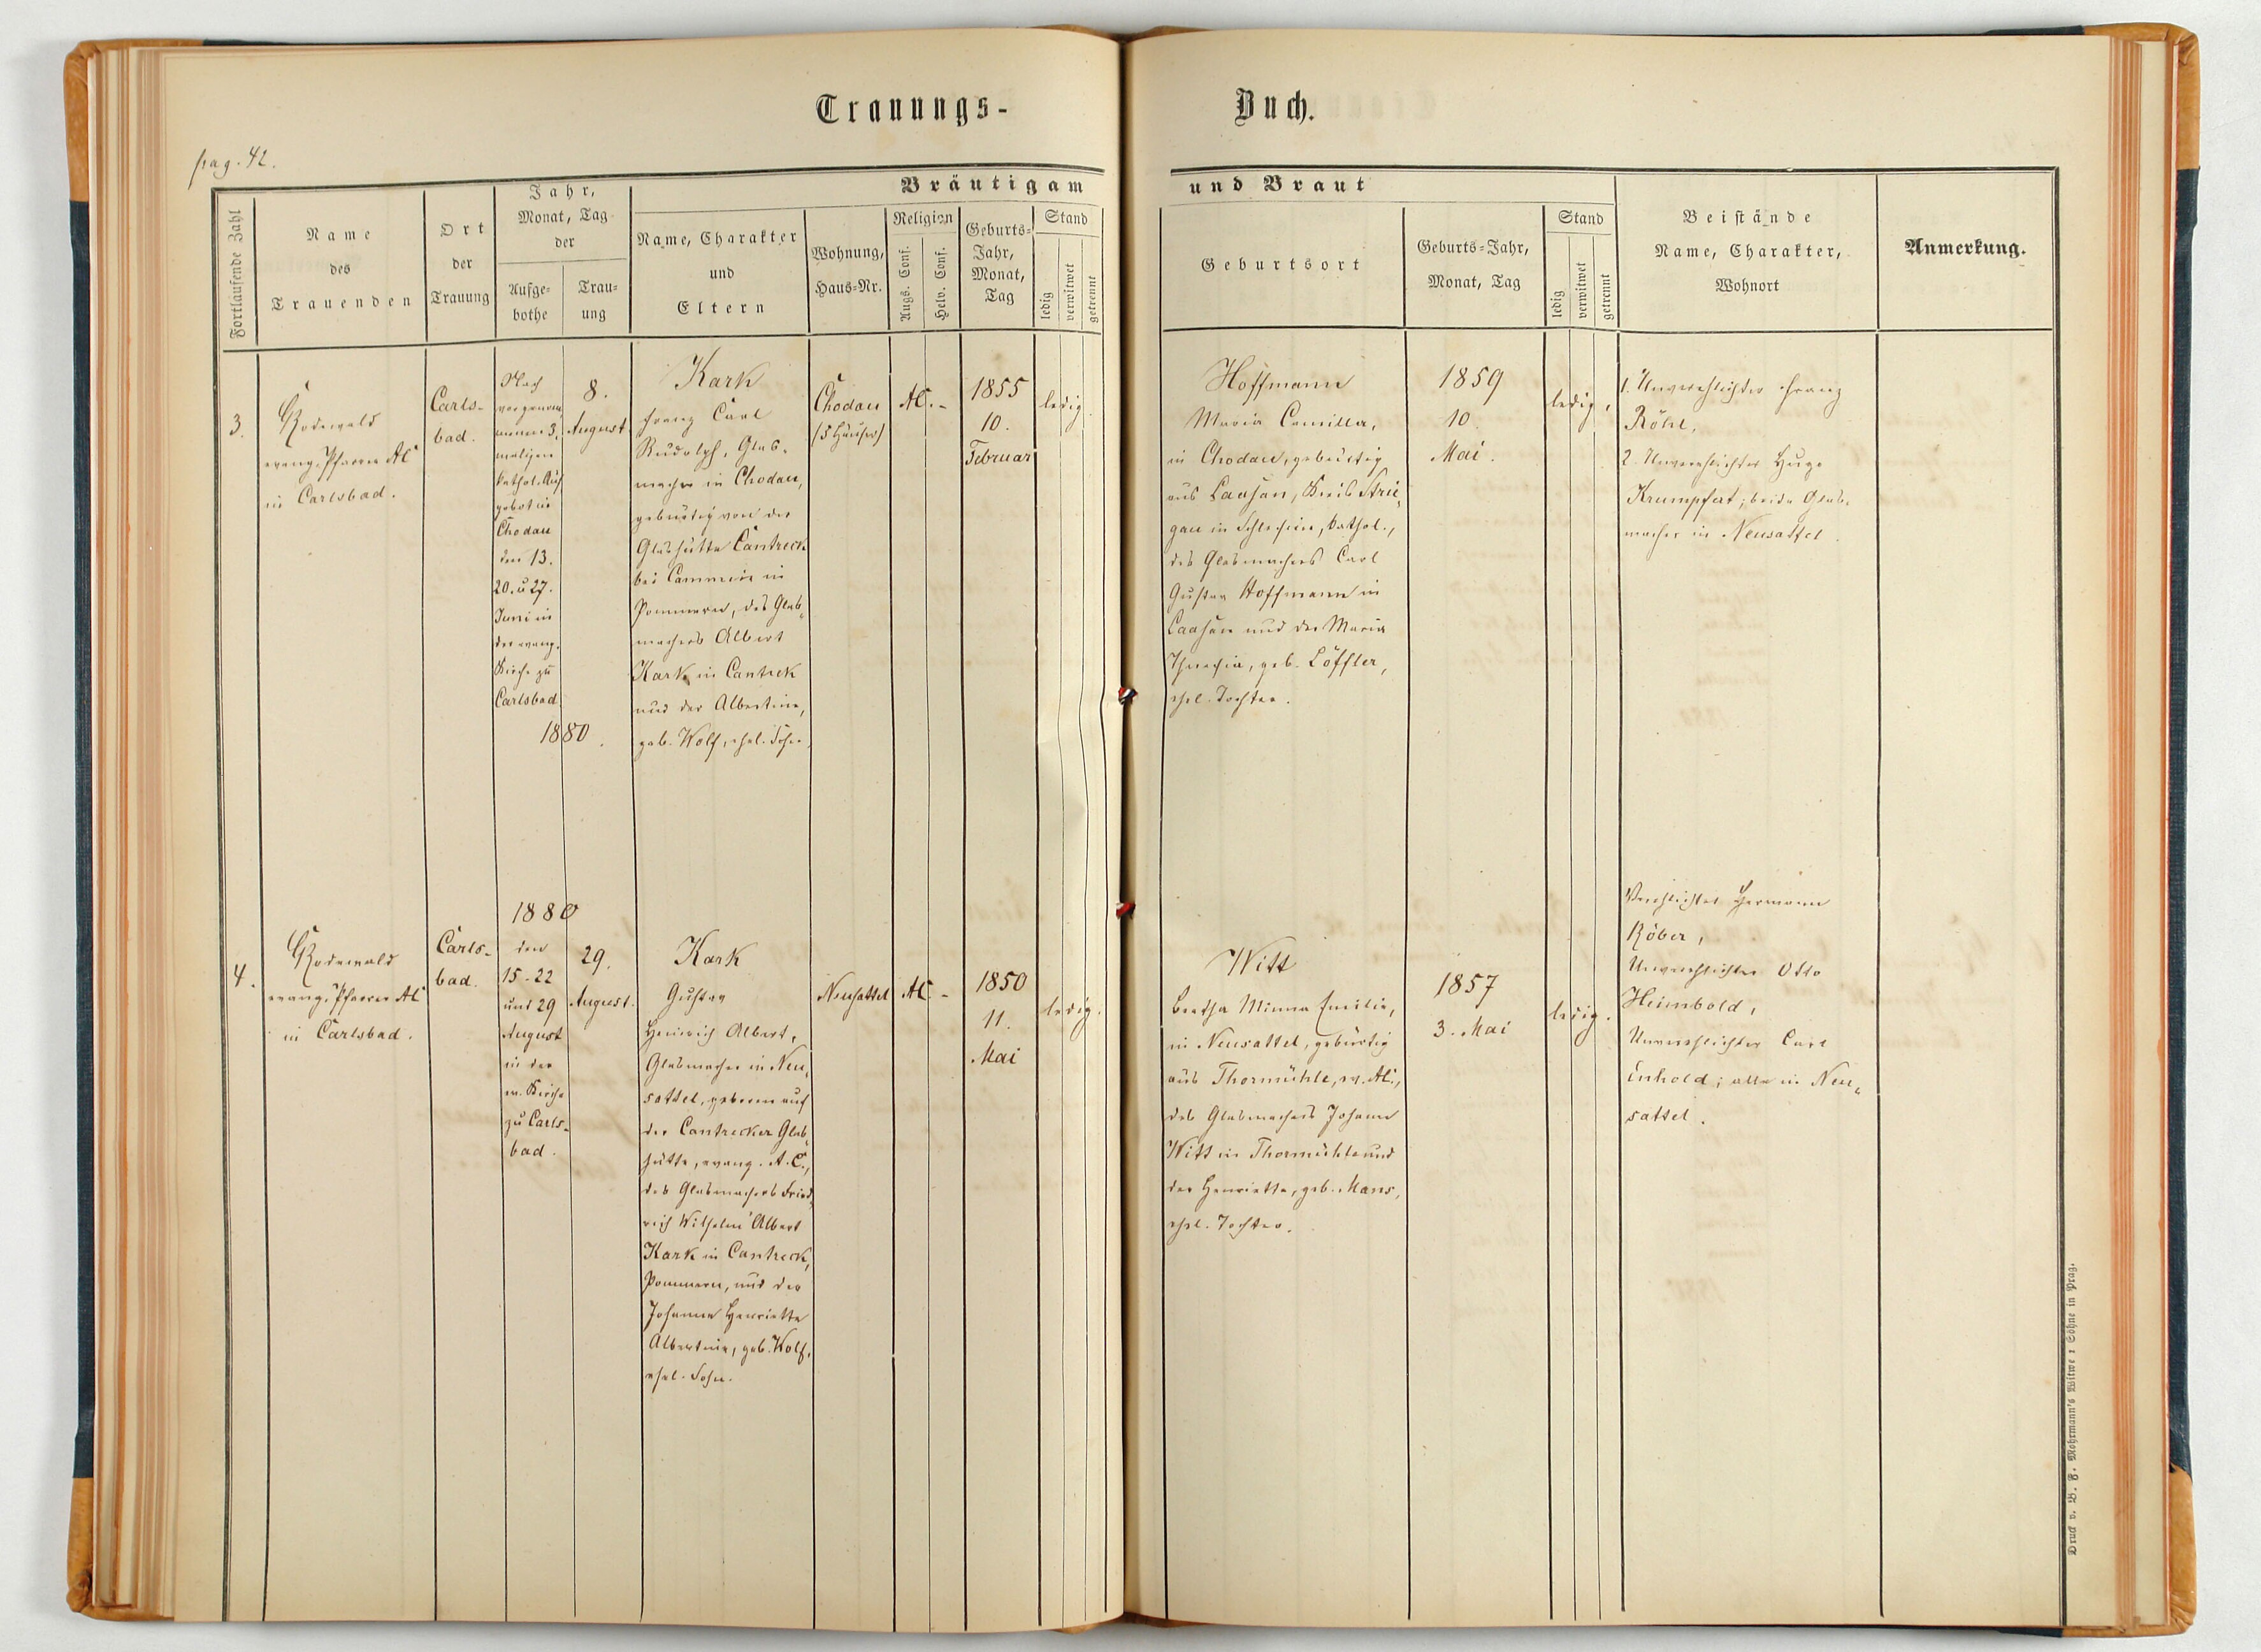 Trauungs-
Buch.
pag. 42.
Fortlaufende Zahl
Name
des
Trauenden
Ort
der
Trauung
Jahr,
Monat, Tag
der
Aufge-
bothe
Trau-
ung
Bräutigam
Name, Charakter
und
Eltern
Wohnung,
Haus-Nr.
Religion
Augs. Conf.
Helv. Conf.
Geburts-
Jahr,
Monat,
Tag
Stand
ledig
verwitwet
getrennt
und Braut
Geburtsort
Geburts-Jahr,
Monat, Tag
Stand
ledig
verwitwet
getrennt
Beistände
Name, Charakter,
Wohnort
Anmerkung.
3.
Rodewald
evang. Pfarrer AC
in Carlsbad.
Carls-
bad.
Nach
vorgenom-
menen 3.
maligen
kathol. Auf
gebot in
Chodau
den 13.
20. u 27.
Juni in
der evang.
Kirche zu
Carlsbad
1880.
8.
August
Kark
Franz Carl
Rudolph, Glas-
macher in Chodau,
gebürtig von der
Glashütte Cantreck
bei Cammin in
Pommern, des Glas-
machers Albert
Kark in Cantrek
und der Albertine,
geb. Wolf, ehel. Sohn.
Chodau
(5 Häuser)
AC. -
1855
10.
Februar
ledig.
Hoffmann
Maria Camilla,
in Chodau, gebürtig
aus Laasan, Kreis Strie-
gau in Schlesien, kathol.,
des Glasmachers Carl
Gustav Hoffmann in
Laasan und der Maria
Theresia, geb. Löffler,
ehel. Tochter.
1859
10.
Mai.
ledig.
1. Unverehlichter Franz
Röhl,
2. Unverehlichter Hugo
Krumpfert; beide Glas-
macher in Neusattel.
4.
Rodewald
evang. Pfarrer AC
in Carlsbad.
Carls-
bad.
1880
den
15-22
und 29
August
in der
ev. Kirche
zu Carls-
bad.
29.
August.
Kark
Gustav
Heinrich Albert,
Glasmacher in Neu-
sattel, geboren auf
der Cantrecker Glas-
hütte, evang. A. C.,
des Glasmachers Fried-
rich Wilhelm Albert
Kark in Cantreck,
Pommern, und der
Johanna Henriette
Albertine, geb. Wolf,
ehel. Sohn.
Neusattel
AC. -
1850
11.
Mai
ledig.
Witt
Bertha Minna Emilie,
in Neusattel, gebürtig
aus Thormühle, ev. AC.,
des Glasmachers Johann
Witt in Thormühle und
der Henriette, geb. Mans,
ehel. Tochter.
1857
3. Mai
ledig.
Verehlichter Hermann
Röber,
Unverehlichter Otto
Heimbold,
Unverehlichter Carl
Einhold; alle in Neu-
sattel.
Druck v. W. F. Mohrmann's Witwe & Söhne in Prag.